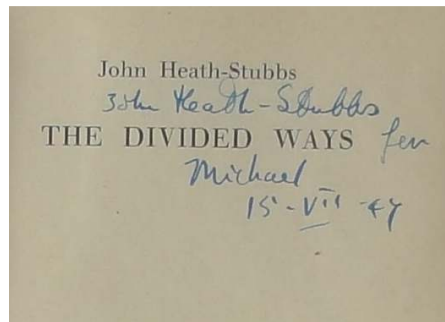 John Heath-Stubbs
John Heath-Stubbs
THE DIVIDED WAYS for
Michael
15-VII-47